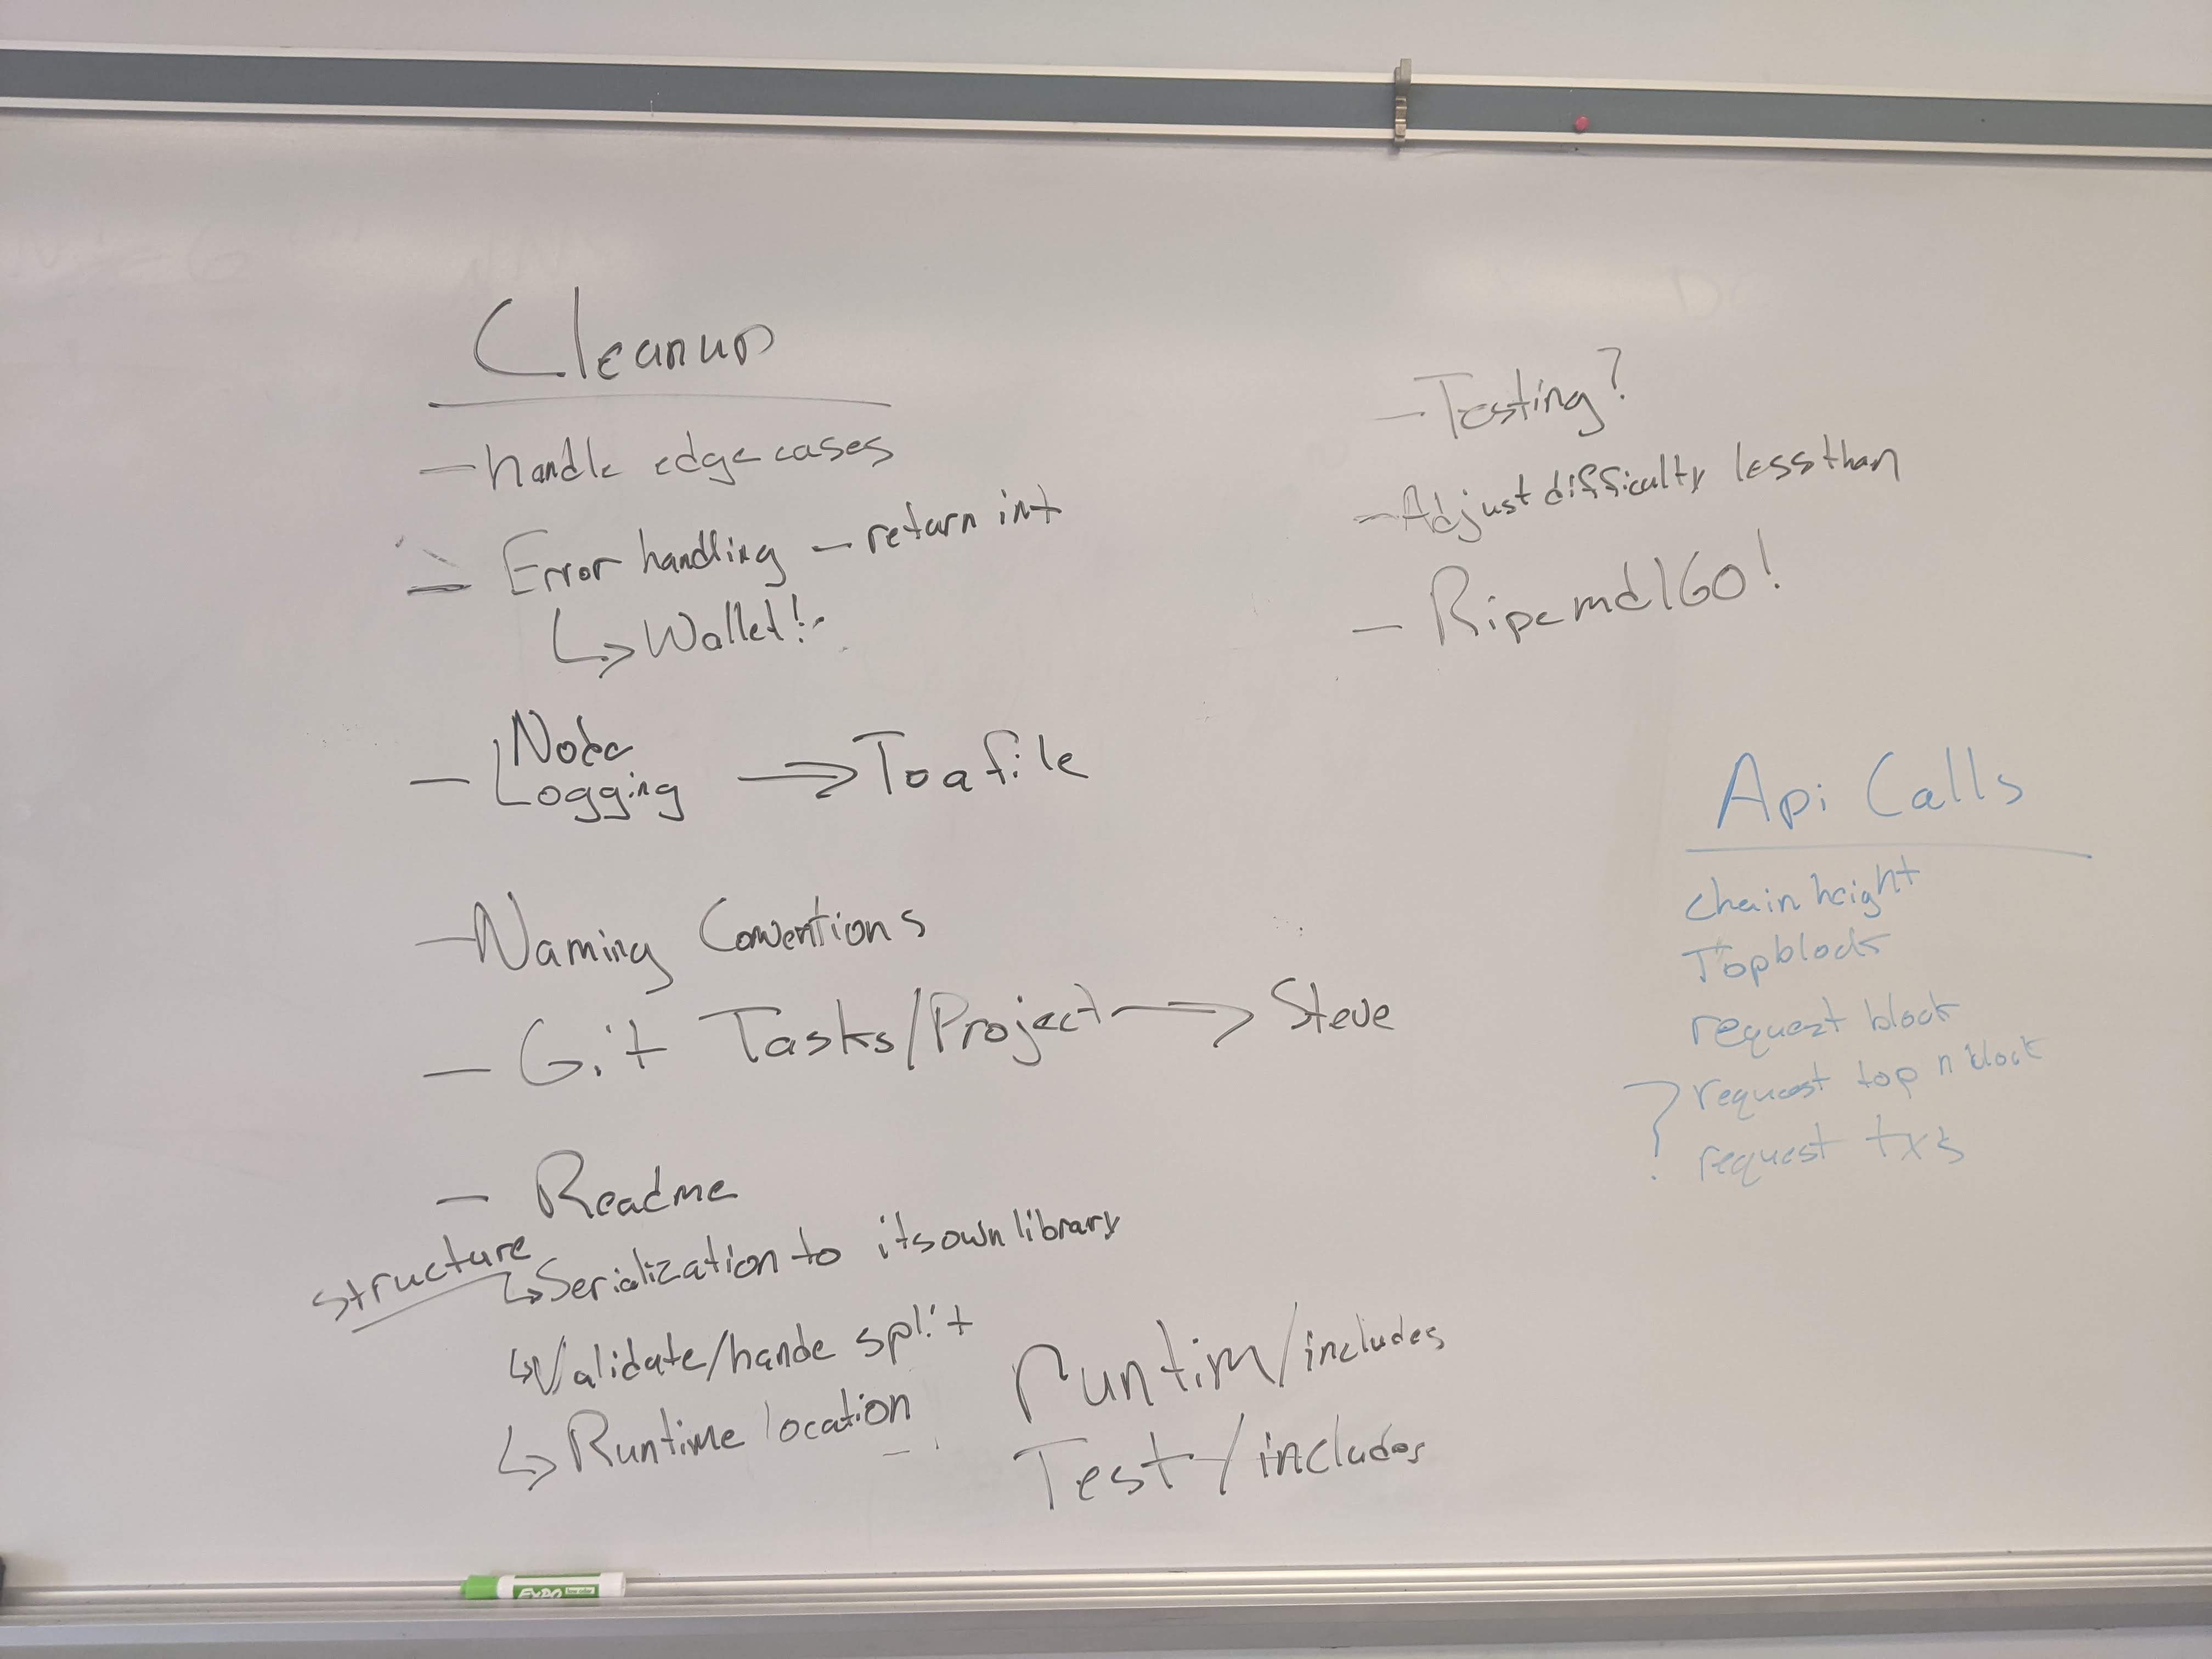 Cleanup
- handle edge cases
- Error handling - return int
↳ Wallet!
- Node
Logging → To a file
- Naming Conventions
- Git Tasks/Project → Steve
- Readme
structure
↳ Serialization to its own library
↳ Validate/hande split
↳ Runtime location
runtim/includes
Test/includes
- Testing?
- Adjust difficulty less than
- Ripemd160!
Api Calls
chain height
Top block
request block
? request top n block
request txs
EXPO